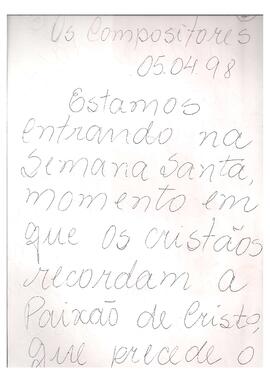 Os Compositores
05.04.98
Estamos
entrando na
Semana Santa,
momento em
que os cristãos
recordam a
Paixão de Cristo,
que precede o